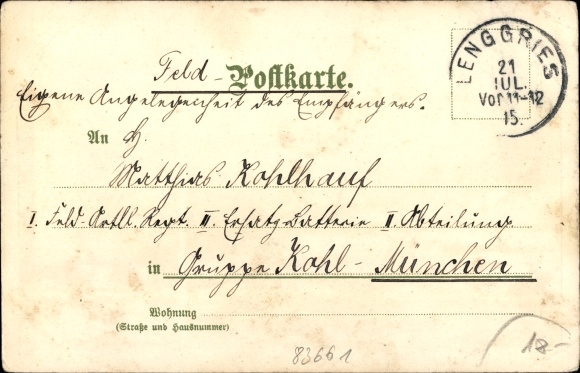 LENGGRIES
21
IUL.
Vor 11-12
15.
Feld-Postkarte.
Eigene Angelegenheit des Empfängers.
An H.
Matthias Kohlhauf
I. Feld-Artll. Regt. II. Ersatz-Batterie II Abteilung
in Gruppe Kohl-München
Wohnung
(Straße und Hausnummer)
83661
12-